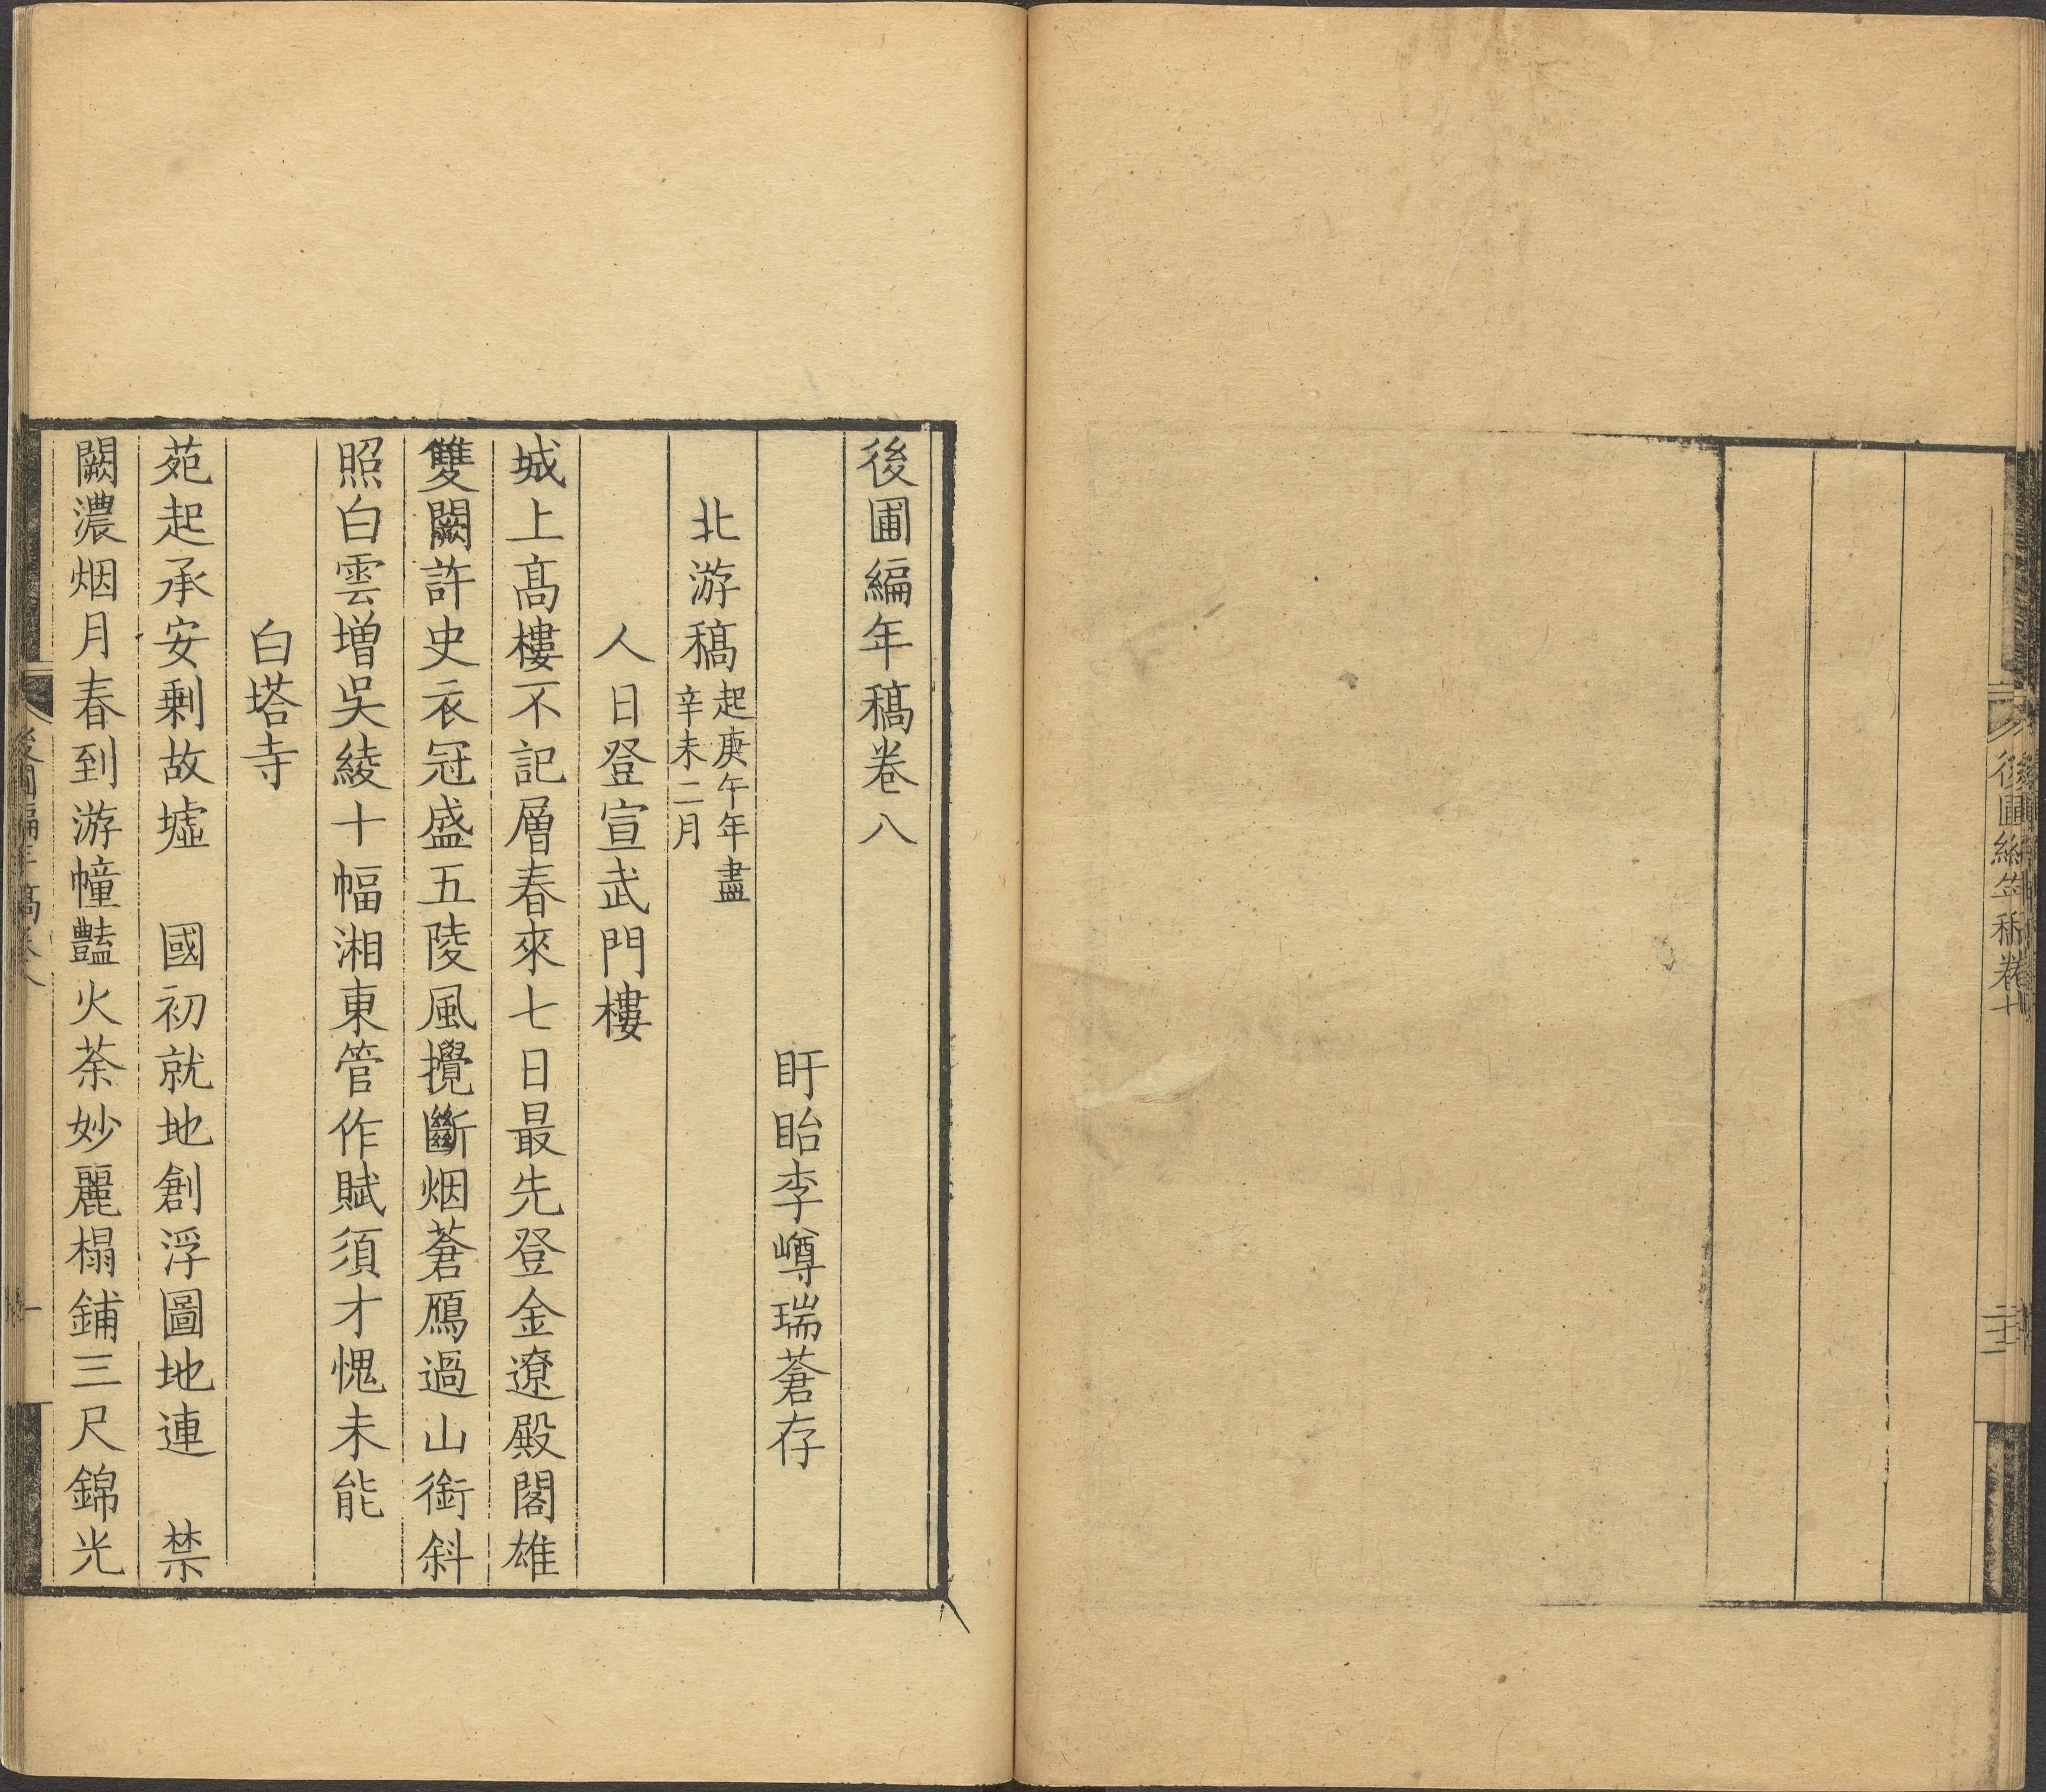 後圃編年稿卷八
盱眙李嶟瑞蒼存
北游稿起庚午年盡
辛未二月
人日登宣武門樓
城上高樓不記層春來七日最先登金遼殿閣雄
雙闕許史衣冠盛五陵風攪斷烟蒼鴈過山銜斜
照白雲增吳綾十幅湘東管作賦須才愧未能
白塔寺
苑起承安剩故墟 國初就地創浮圖地連 禁
闕濃烟月春到游幢豔火荼妙麗榻鋪三尺錦光
後圃編年稿卷八
一